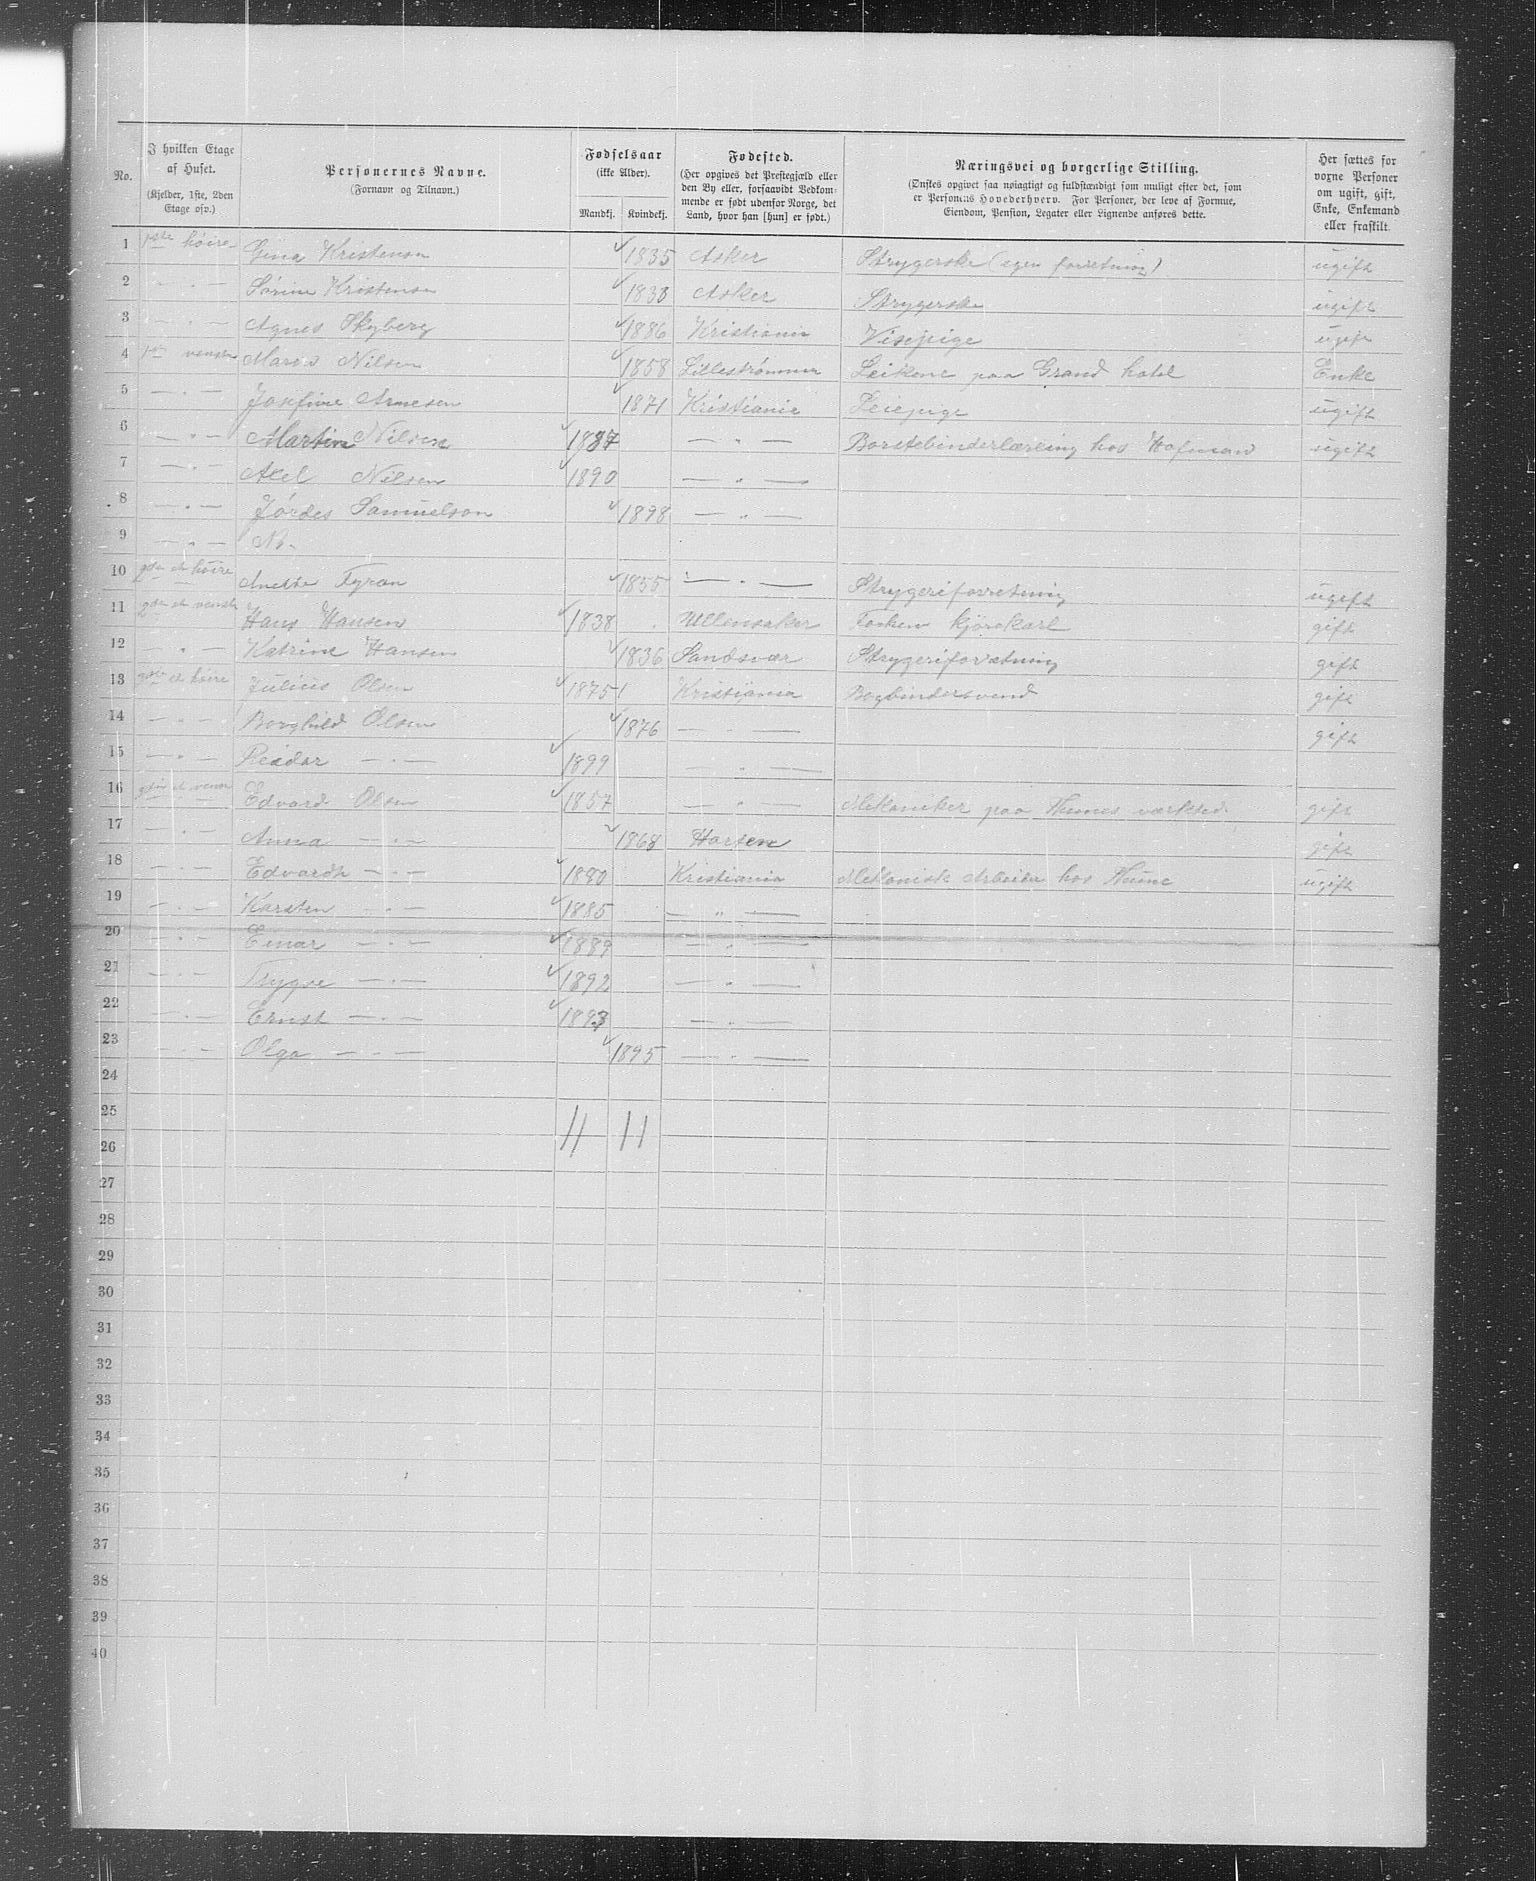 No.
I hvilken Etage af Huset. (Kjelder, 1ste, 2den Etage osv.)
Personernes Navne. (Fornavn og Tilnavn.)
Fødselsaar (ikke Alder).
Mandkj. Kvindekj.
Fødested. (Her opgives det Prestegjæld eller den By eller, forsaavidt Vedkommende er født udenfor Norge, det Land, hvor han [hun] er født.)
Næringsvei og borgerlige Stilling. (Ønskes opgivet saa nøiagtigt og fuldstændigt som muligt efter det, som er Personens Hovederhverv. For Personer, der leve af Formue, Eiendom, Pension, Legater eller Lignende anføres dette.
Her sættes for voxne Personer om ugift, gift, Enke, Enkemand eller fraskilt.
1 1ste høire Gina Kristensen 1835 Asker Strygerske (egen forretning) ugift
2 — " — Sørine Kristensen 1838 Asker Strygerske ugift
3 — " — Agnes Skyberg 1886 Kristiania Visepige ugift
4 1ste venstre Nilsen 1858 Lillestrømmen paa Grand hotel Enke
5 — " — Josefine Arnesen 1871 Kristiania Leiepige ugift
6 — " — Martin Nilsen 1887 — " — Børstebinderlærling hos ugift
7 — " — Axel Nilsen 1890 — " —
8 — " — Jórdes Samuelson 1898 — " —
9 — " — No.
10 høire Anette Fyran 1855 — " — Strygeriforretning ugift
11 venstre Hans Hansen 1838 Ullensaker kjørekarl gift
12 — " — Katrine Hansen 1836 Sandsvær Strygeriforretning gift
13 høire Julius Olsen 1875 Kristiania Bogbindersvend gift
14 — " — Borghild Olsen 1876 — " — gift
15 — " — Reidar — " — 1899 — " —
16 Edvard Olsen 1857 — " — Mekaniker paa værksted gift
17 — " — Anna — " — 1868 Horten gift
18 — " — Edvardh — " — 1880 Kristiania Mekanisk Arbeider hos ugift
19 — " — Karsten — " — 1885 — " —
20 — " — Einar — " — 1889 — " —
21 — " — Trygve — " — 1892 — " —
22 — " — Ernst — " — 1893 — " —
23 — " — Olga — " — 1895 — " —
24
25 11 11
26
27
28
29
30
31
32
33
34
35
36
37
38
39
40